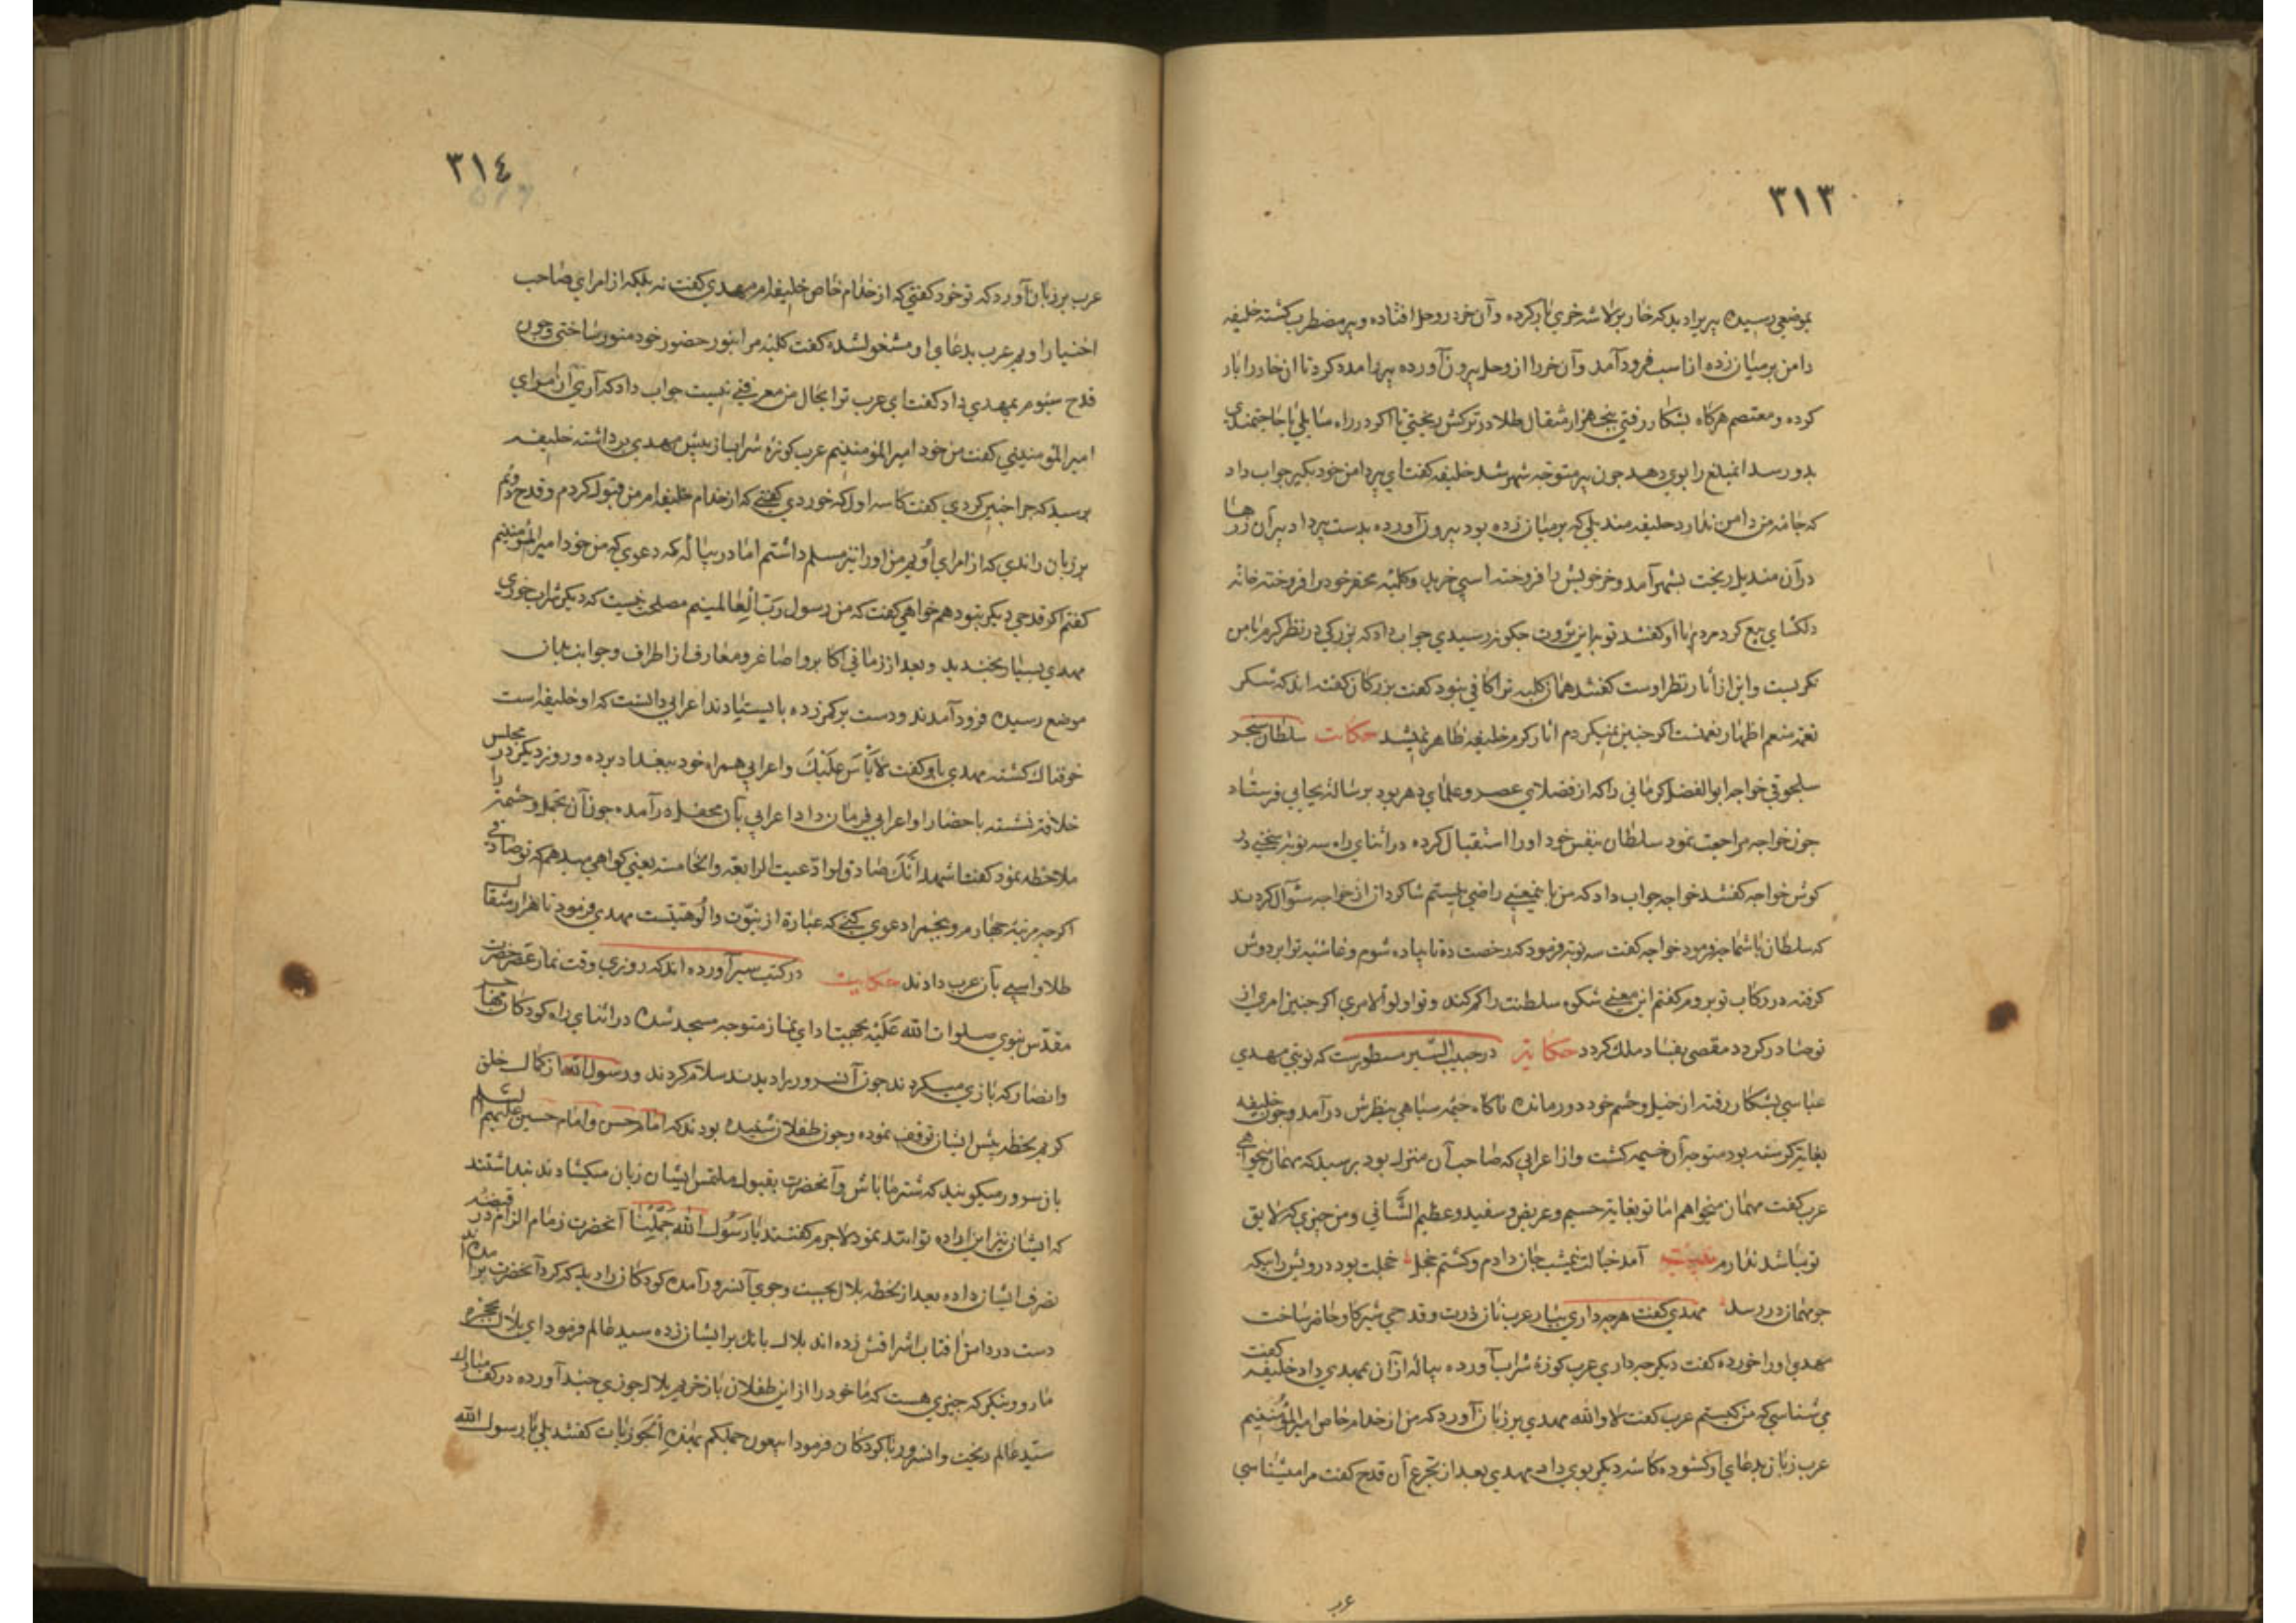 ٣١٣
بموضعی رسیده پیر برا دید که خار بر لاشه خری بار کرده و آن خر در وحل افتاده و پیر مضطرب کشته خلیفه
دامن بر میان زده از اسب فرود آمد و آن خر را از وحل بیرون آورده پیر را مدد کرد تا آن خار را بار
کرده و معتصم هرکاه بشکار رفتی پنج هزار مثقال طلا در ترکش ریختی تا اکر در راه سایلی یا حاجتمندی
بدو رسد انمبلغ را بوی دهد جون پیر متوجه شهر شد خلیفه کفت ای پیر دامن خود بکیر جواب داد
که جامه من دامن ندارد خلیفه مندیلی که بر میان زده بود بیرون آورده بدست پیر داد پیر آن زرها
در آن مندیل ریخت بشهر آمد و خر خویش را فروخته اسپی خرید و کلبه محقر خود را فروخته خانه
دلکشای بیع کرد مردم با او کفتند تو باین ثروت جکونه رسیدی جواب داد که بزرکی در نظر کرم با من
نکریست و این از آثار نظر اوست کفتند همان کلبه ترا کافی نبود کفت بزرکان کفته اند که شکر
نعمة منعم اظهار نعمتست اکر جنین نمیکردم اثار کرم خلیفه ظاهر نمیشد حکایت سلطان سنجر
سلجوقی خواجه ابو الفضل کرمانی را که از فضلای عصر و علمای دهر بود برسالة بجایی فرستاد
جون خواجه مراجعت نمود سلطان بنفس خود او را استقبال کرده در اثنای راه سه نوبة سخنی در
کوش خواجه کفتند خواجه جواب داد که من باینمعنی راضی نیستم شاکردان از خواجه سؤال کردند
که سلطان با شما جه فرمود خواجه کفت سه نوبة فرمود که رخصت ده تا پیاده شوم و غاشیه ترا بر دوش
کرفته در رکاب تو بروم کفتم این معنی شکوه سلطنت را کم کند و تو اولو الامری اکر جنین امری از
تو صادر کردد مقضی بفساد ملک کردد حکایة در حبیب السیر مسطورست که نوبتی مهدی
عباسی بشکار رفته از خیل و حشم خود دور مانده ناکاه خیمه سیاهی بنظرش در آمد و جون خلیفه
بغایة کرسنه بود متوجه آن خیمه کشت و از اعرابی که صاحب آن منزل بود پرسید که مهمان میخواهی
عرب کفت مهمان میخواهم اما تو بغایة جسیم و عریض و سفید و عظیم الشأنی و من جیزی که لایق
تو باشد ندارم بیت آمد خیالت نیمشب جان دادم و کشتم خجل خجلت بود درویش را بیکه
جو مهمان در رسد مهدی کفت هرجه داری بیار عرب نان ذرت و قدحی شیر کاو حاضر ساخت
مهدی او را خورده کفت دیکر جه داری عرب کوزة شراب آورده پیاله از آن بمهدی داد خلیفه کفت
می شناسی که من کیستم عرب کفت لا والله مهدی بر زبان آورد که من از خدام خاص امیر المؤمنینم
عرب زبان بدعای او کشوده کاسه دیکر بوی داد مهدی بعد از تجرع آن قدح کفت مرا میشناسی
عر
٣١٤
عرب بر زبان آورد که تو خود کفتی که از خدام خاص خلیفه ام مهدی کفت نه بلکه از امرای صاحب
اختیار اویم عرب بدعای او مشغول شده کفت کلبه مرا بنور حضور خود منور ساختی و جون
قدح سیوم بمهدی داد کفت ای عرب ترا بحال من معرفتی نیست جواب داد که آری از امرای
امیر المؤمنینی کفت من خود امیر المؤمنینم عرب کوزة شراب از پیش مهدی برداشته خلیفه
پرسید که جرا جنین کردی کفت کاسه اول که خوردی کفتی که از خدام خلیفه ام من قبول کردم و قدح دوم
بر زبان راندی که از امرای اویم من او را نیز مسلم داشتم اما در پیاله که دعوی که من خود امیر المؤمنینم
کفتم اکر قدحی دیکر بنود هم خواهی کفت که من رسول رب العالمینم مصلحت نیست که دیکر شراب خوری
مهدی بسیار بخندید و بعد از زمانی اکابر و اصاغر و معارف از اطراف و جوانب بدان
موضع رسیده فرود آمدند و دست بر کمر زده بایستادند اعرابی دانست که او خلیفه است
خوفناک کشته مهدی باو کفت لا بأس علیک و اعرابی همراه خود ببغداد برده و روز دیکر در مجلس
خلافة نشسته باحضار او اعرابی فرمان داد اعرابی بآن محفل در آمده جون آن تجمل و حشمة را
ملاحظه نمود کفت اشهد انک صادق ولو ادعیت الرابعة والخامسة یعنی کواهی میدهم که تو صادقی
اکرجه مرتبة جهارم و پنجم را دعوی کنی که عبارة از نبوت و الوهیتست مهدی فرمود تا هزار مثقال
طلا و اسپی بآن عرب دادند حکایت در کتب سیر آورده اند که روزی وقت نماز عصر حضرت
مقدس نبوی صلوات الله علیه بجهت ادای نماز متوجه مسجد شده در اثنای راه کودکان مهاجر
و انصار که بازی میکردند جون آنسرور را دیدند سلام کردند و رسول الله از کمال خلق
کریم لحظه پیش ایشان توقف نموده و جون طفلان شنیده بودند که امام حسن و امام حسین علیهم السلام
بان سرور میکویند که شتر ما باش و آنحضرت بقبول ملتمس ایشان زبان میکشادند پنداشتند
که ایشان نیز این اراده توانند نمود لاجرم کفتند یا رسول الله جملینا آنحضرت زمام الزام در قبضه
تصرف ایشان داده بعد از لحظه بلال بجست و جوی آنسرور آمده کودکان را دید که کرد آنحضرت بر آمده اند
دست در دامن آفتاب اشراقش زده اند بلال بانک بر ایشان زده سید عالم فرمود ای بلال بحجره
ما رو و بنکر که جیزی هست که ما خود را از این طفلان باز خریم بلال جوزی جند آورده در کف مبارک
سید عالم ریخت و انسرور با کودکان فرمود اتبیعون جملکم بهذه الجوزیات کفتند بلی یا رسول الله